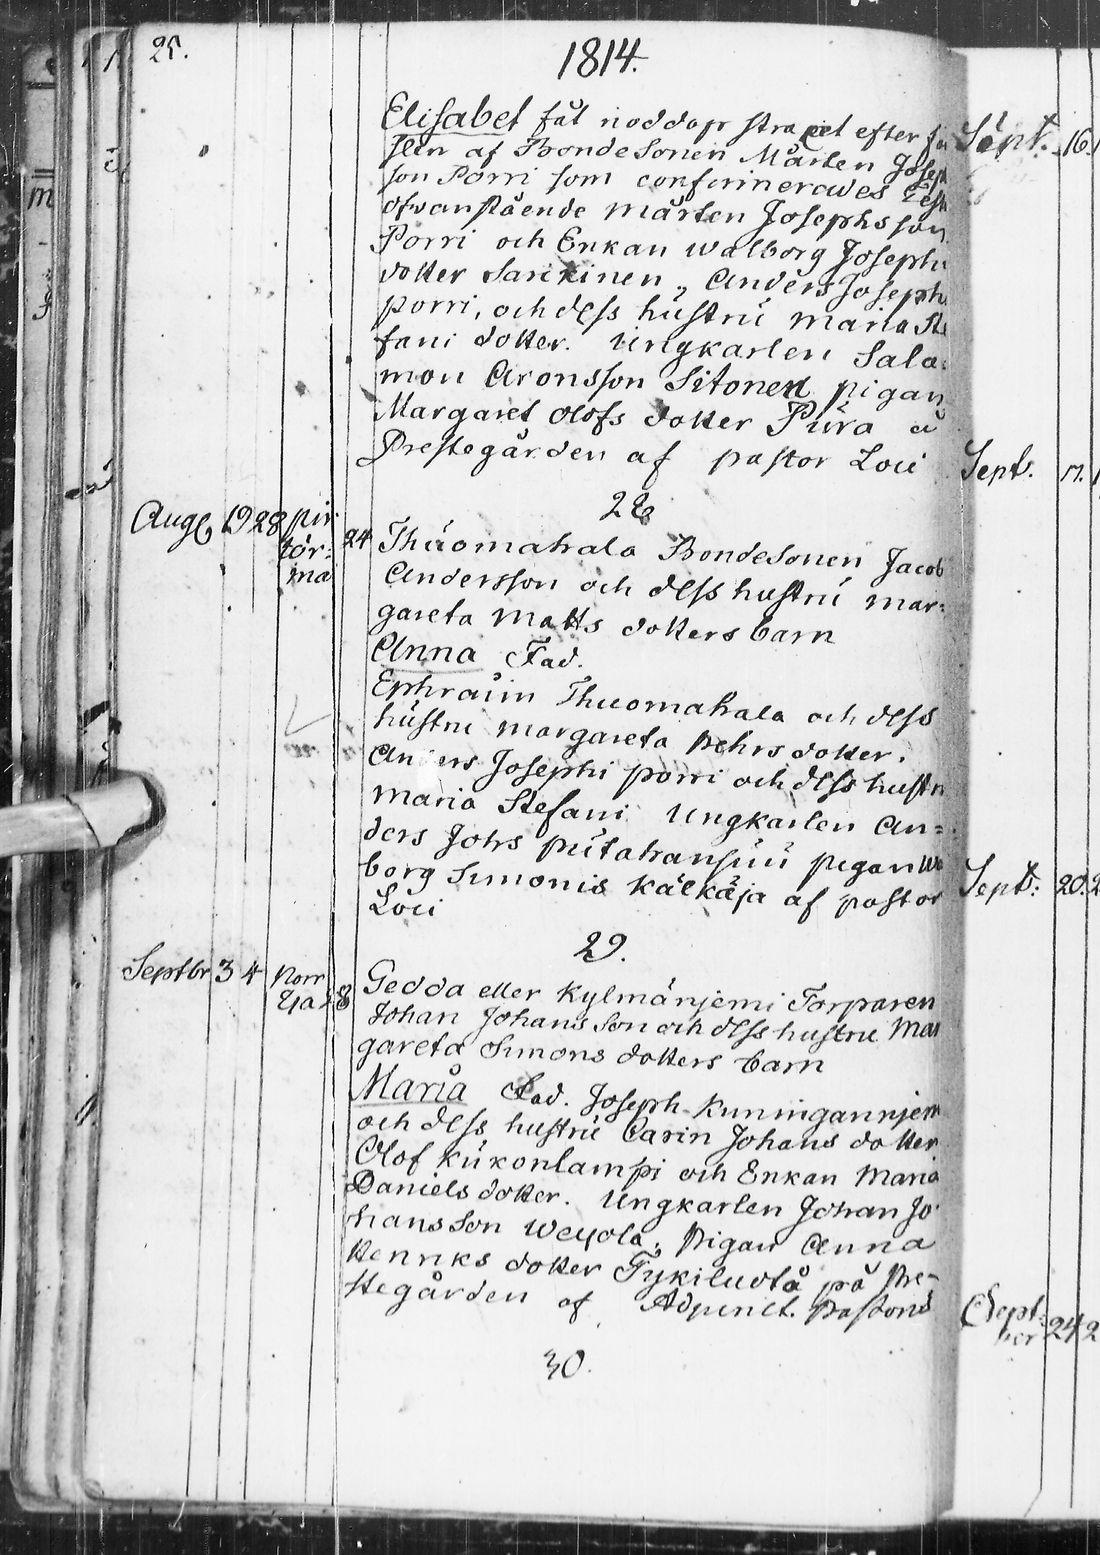 25.
1814.
Elisabet fåt noddop straxet efter
sten af BondeSonen Mårten Joseph
son Porri som confirmerades
ofvanstående Mårten Josephsson
Porri och Enkan walborg Josephs
dotter Sarikinen, Anders Josephs
porri, och dess hustru Maria Ste
fani dotter. Ungkarlen Salo:
mon Aronsson Sitonen pigan
Margaret Olofs dotter Pura å
Prestegården af pastor Loci
28
Aug 19 28 pir
tör=
ma
24 Thuomahala BondeSonen Jacob
Andersson och dess hustru mar=
gareta Matts dotters barn
Anna Fad.
Ephraim Thuomahala och dess
hustru margareta Pehrs dotter.
Anders Josephi porri och dess hustru
Maria Stefani Ungkarlen An=
ders Johs putahansuu pigan Wa
borg Simonis Kälkäja af pastor
Loci
29.
Septbr 3 4 Norr
8 Gedda eller Kylmänjemi Torparen
Johan Johans Son och dess hustru Mar
gareta Simons dotters barn
Maria Fad. Joseph Kuningannjemi
och dess hustru Carin Johans dotter
Olof Kukonlampi och Enkan Maria
Daniels dotter. Ungkarlen Johan Jo
hans Son Weyola, Pigan Anna
Henriks dotter Tykiludtå på Pre-
stegården af Adjunct. Pastoris
30.
Sept. 16.
Sept. 17.
Sept: 20.
Sept=
ber 24